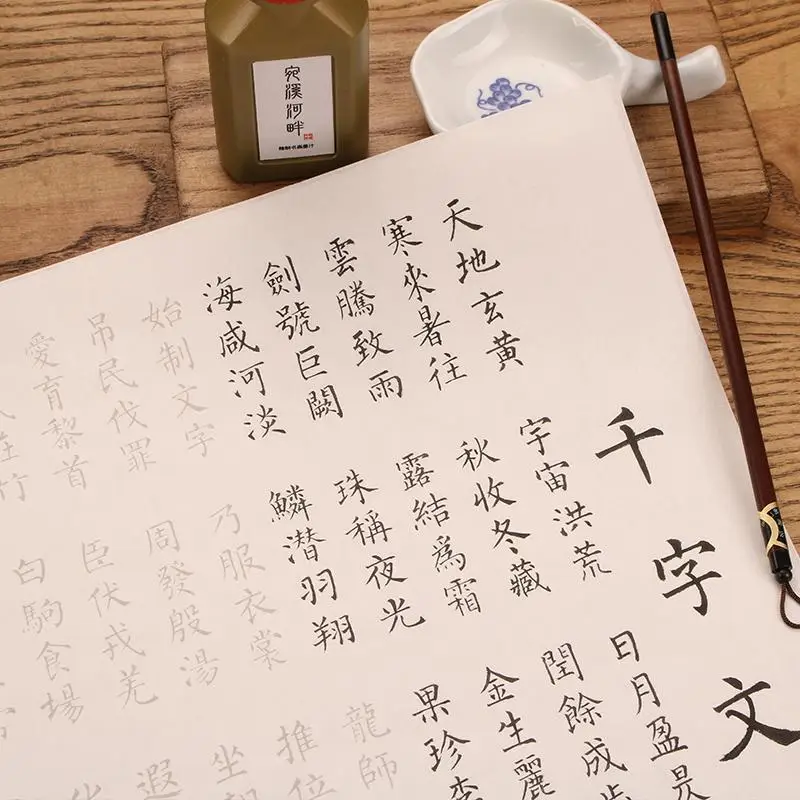 宛溪河畔
精制书画墨汁
千字文
天地玄黄 宇宙洪荒 日月盈昃
寒來暑往 秋收冬藏 閏餘成
雲騰致雨 露結爲霜 金生麗
劍號巨闕 珠稱夜光 果珍李
海咸河淡 鱗潜羽翔 龍師
始制文字 乃服衣裳 推位
吊民伐罪 周發殷湯 坐
愛育黎首 臣伏戎羌 遐
在竹 白駒食場